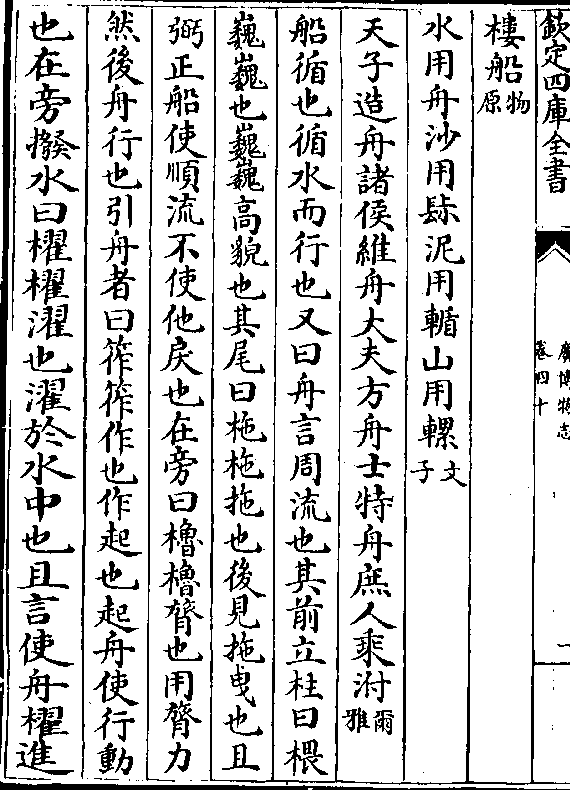 欽定四庫全書
廣博物志
卷四十
一
樓船物原
水用舟沙用𣥺泥用輴山用樏文子
天子造舟諸侯維舟大夫方舟士特舟庶人乘泭爾雅
船循也循水而行也又曰舟言周流也其前立柱曰椳
巍巍也巍巍高貌也其尾曰柂柂拖也後見拖曵也且
弼正船使順流不使他戾也在旁曰櫓櫓膂也用膂力
然後舟行也引舟者曰筰筰作也作起也起舟使行動
也在旁撥水曰櫂櫂濯也濯於水中也且言使舟櫂進